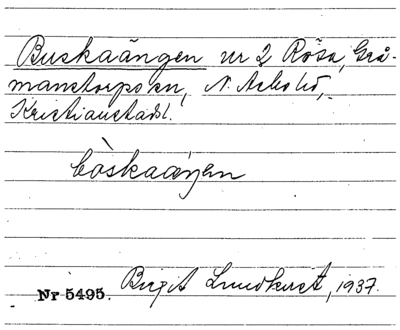 Buskaängen nr 2 Rösa, Grå-
manstorps sn, N. Åsbo hd,
Kristianstads l.
bòskaäŋen
Nr 5495. Birgit Lundkvist, 1937.